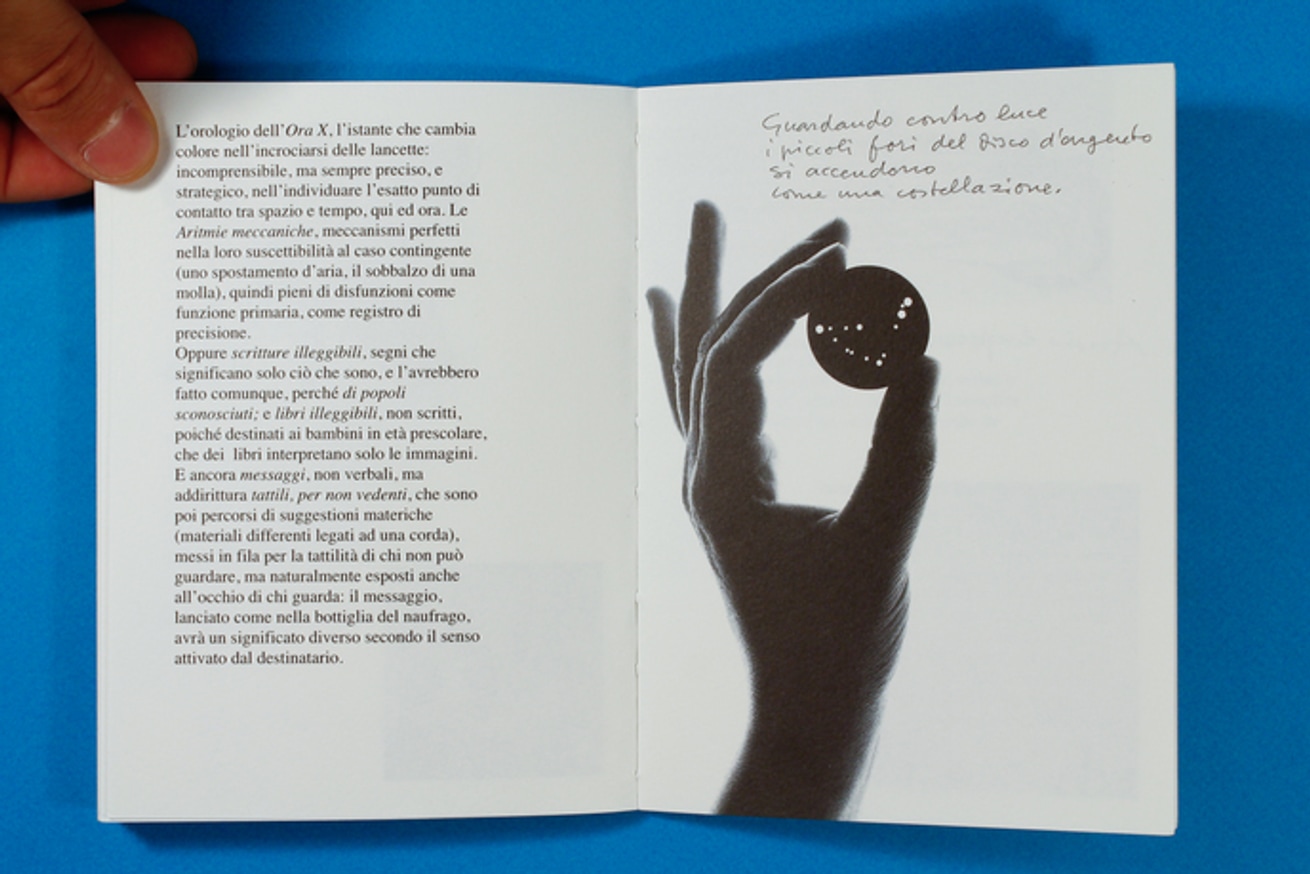 L'orologio dell'Ora X, l'istante che cambia
colore nell'incrociarsi delle lancette:
incomprensibile, ma sempre preciso, e
strategico, nell'individuare l'esatto punto di
contatto tra spazio e tempo, qui ed ora. Le
Aritmie meccaniche, meccanismi perfetti
nella loro suscettibilità al caso contingente
(uno spostamento d'aria, il sobbalzo di una
molla), quindi pieni di disfunzioni come
funzione primaria, come registro di
precisione.
Oppure scritture illeggibili, segni che
significano solo ciò che sono, e l'avrebbero
fatto comunque, perché di popoli
sconosciuti; e libri illeggibili, non scritti,
poiché destinati ai bambini in età prescolare,
che dei libri interpretano solo le immagini.
E ancora messaggi, non verbali, ma
addirittura tattili, per non vedenti, che sono
poi percorsi di suggestioni materiche
(materiali differenti legati ad una corda),
messi in fila per la tattilità di chi non può
guardare, ma naturalmente esposti anche
all'occhio di chi guarda: il messaggio,
lanciato come nella bottiglia del naufrago,
avrà un significato diverso secondo il senso
attivato dal destinatario.
Guardando contro luce
i piccoli fori del disco d'argento
si accendono
come una costellazione.